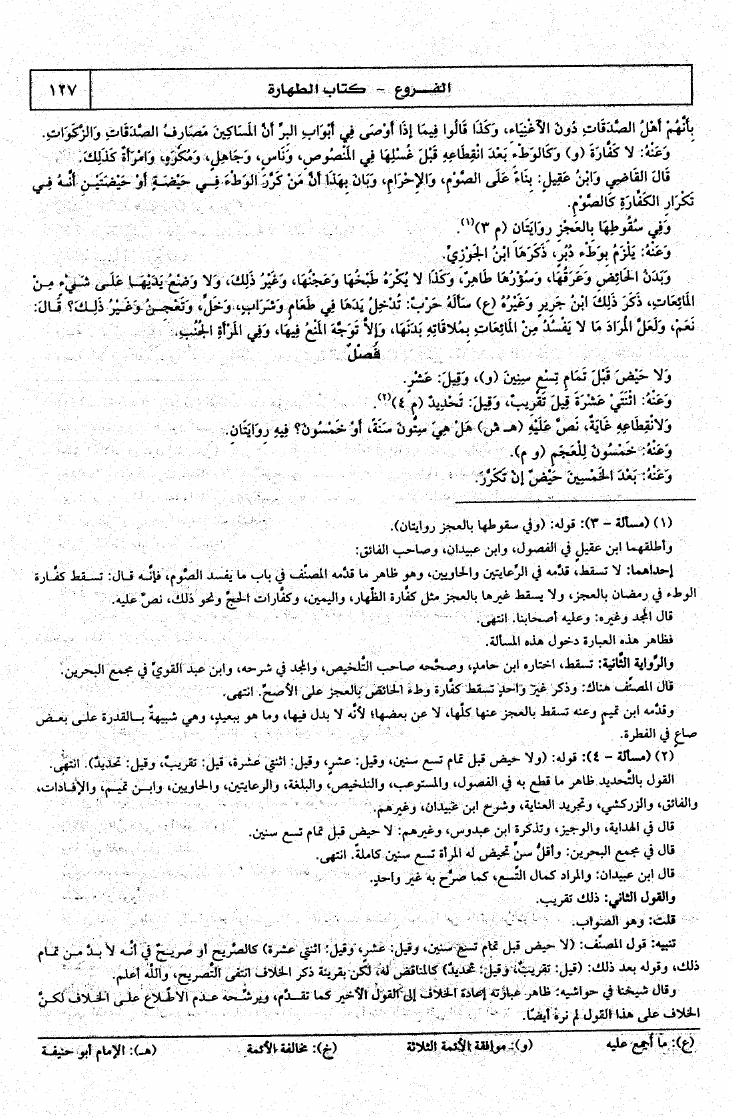 الفروع - كتاب الطهارة ١٢٧
بِأَنَّهُمْ أَهْلُ الصَّدَقَاتِ دُونَ الأَغْنِيَاء، وَكَذَا قَالُوا فِيمَا إِذَا أَوْصَى فِي أَبْوَابِ البرِّ أَنَّ المَسَاكِينَ مَصَارِفُ الصَّدَقَاتِ وَالزَّكَوَاتِ.
وَعَنْهُ: لا كَفَّارَةَ (و) وَكَالوَطْءِ بَعْدَ انْقِطَاعِهِ قَبْلَ غُسْلِهَا فِي المَنْصُوصِ، وَنَاسٍ، وَجَاهِلٍ، وَمُكْرَهٍ، وَامْرَأَة كَذَلِكَ.
قَالَ القَاضِي وَابْنُ عَقِيلٍ: بِنَاءً عَلَى الصَّوْمِ، وَالإِحْرَامِ، وَبَانَ بِهَذَا أَنَّ مَنْ كَرَّرَ الوَطْءَ فِي حَيْضَةٍ أَوْ حَيْضَتَيْنِ أَنَّهُ فِي
تَكْرَارِ الكَفَّارَةِ كَالصَّوْمِ.
وَفِي سُقُوطِهَا بِالعَجْزِ رِوَايَتَانِ (م ٣)(١).
وَعَنْهُ: يَلْزَمُ بِوَطْءِ دُبُرٍ، ذَكَرَهَا ابْنُ الجَوْزِيِّ.
وَبَدَنُ الحَائِضِ وَعَرَقُهَا، وَسُؤْرُهَا طَاهِرٌ، وَكَذَا لا يُكْرَهُ طَبْخُهَا وَعَجْنُهَا، وَغَيْرُ ذَلِكَ، وَلا وَضْعُ يَدَيْهَا عَلَى شَيْءٍ مِنْ
المَائِعَاتِ، ذَكَرَ ذَلِكَ ابْنُ جَرِيرٍ وَغَيْرُهُ (ع) سَأَلَهُ حَرْبٌ: تُدْخِلُ يَدَهَا فِي طَعَامٍ وَشَرَابٍ، وَخَلٍّ، وَتَعْجِنُ وَغَيْرُ ذَلِكَ؟ قَالَ:
نَعَمْ، وَلَعَلَّ المُرَادَ مَا لا يَفْسُدُ مِنَ المَائِعَاتِ بِمُلاقَاتِهِ بَدَنَهَا، وَإِلاَّ تَوَجَّهَ المَنْعُ فِيهَا، وَفِي المَرْأَةِ الجُنُبِ.
فَصْلٌ
وَلا حَيْضَ قَبْلَ تَمَامِ تِسْعِ سِنِينَ (و)، وَقِيلَ: عَشْرٍ.
وَعَنْهُ: اثْنَتَيْ عَشْرَةَ قِيلَ تَقْرِيبٌ، وَقِيلَ: تَحْدِيدٌ (م ٤)(٢).
وَلانْقِطَاعِهِ غَايَةٌ، نَصَّ عَلَيْهِ (هـ ش) هَلْ هِيَ سِتُّونَ سَنَةً، أَوْ خَمْسُونَ؟ فِيهِ رِوَايَتَانِ.
وَعَنْهُ: خَمْسُونَ لِلْعَجَمِ (و م).
وَعَنْهُ: بَعْدَ الخَمْسِينَ حَيْضٌ إِنْ تَكَرَّرَ.
(١) (مسألة - ٣): قوله: (وفي سقوطها بالعجز روايتان).
وأطلقهما ابن عقيل في الفصول، وابن عبيدان، وصاحب الفائق:
إحداهما: لا تسقط، قدَّمه في الرِّعايتين والحاويين، وهو ظاهر ما قدَّمه المصنِّف في باب ما يفسد الصَّوم، فإنَّه قال: تسقط كفَّارة
الوطء في رمضان بالعجز، ولا يسقط غيرها بالعجز مثل كفَّارة الظِّهار، واليمين، وكفَّارات الحجِّ ونحو ذلك، نصَّ عليه.
قال المجد وغيره: وعليه أصحابنا. انتهى.
فظاهر هذه العبارة دخول هذه المسألة.
والرِّواية الثَّانية: تسقط، اختاره ابن حامدٍ، وصحَّحه صاحب التَّلخيص، والمجد في شرحه، وابن عبد القويِّ في مجمع البحرين.
قال المصنِّف هناك: وذكر غير واحدٍ تسقط كفَّارة وطء الحائض بالعجز على الأصحِّ. انتهى.
وقدَّمه ابن تميم وعنه تسقط بالعجز عنها كلِّها، لا عن بعضها؛ لأنَّه لا بدل فيها، وما هو ببعيدٍ، وهي شبيهةٌ بالقدرة على بعض
صاعٍ في الفطرة.
(٢) (مسألة - ٤): قوله: (ولا حيض قبل تمام تسع سنين، وقيل: عشرٍ، وقيل: اثنتي عشرة، قيل: تقريبٌ، وقيل: تحديدٌ). انتهى.
القول بالتَّحديد ظاهر ما قطع به في الفصول، والمستوعب، والتلخيص، والبلغة، والرعايتين، والحاويين، وابن تميم، والإفادات،
والفائق، والزركشي، وتجريد العناية، وشرح ابن عبيدان، وغيرهم.
قال في الهداية، والوجيز، وتذكرة ابن عبدوس، وغيرهم: لا حيض قبل تمام تسع سنين.
قال في مجمع البحرين: وأقلُّ سنٍّ تحيض له المرأة تسع سنين كاملةً. انتهى.
قال ابن عبيدان: والمراد كمال التِّسع، كما صرَّح به غير واحدٍ.
والقول الثاني: ذلك تقريب.
قلت: وهو الصواب.
تنبيه: قول المصنِّف: (لا حيض قبل تمام تسع سنين، وقيل: عشرٍ، وقيل: اثنتي عشرة) كالصَّريح أو صريحٌ في أنَّه لا بدَّ من تمام
ذلك، وقوله بعد ذلك: (قيل: تقريبٌ، وقيل: تحديدٌ) كالمناقض له، لكن بقرينة ذكر الخلاف انتفى التَّصريح، والله أعلم.
وقال شيخنا في حواشيه: ظاهر عبارته إعادة الخلاف إلى القول الأخير كما تقدَّم، ويرشِّحه عدم الاطِّلاع على الخلاف لكنَّ
الخلاف على هذا القول لم نره أيضًا.
(ع): ما أجمع عليه (و): موافقة الأئمة الثلاثة (خ): مخالفة الأئمة (هـ): الإمام أبو حنيفة